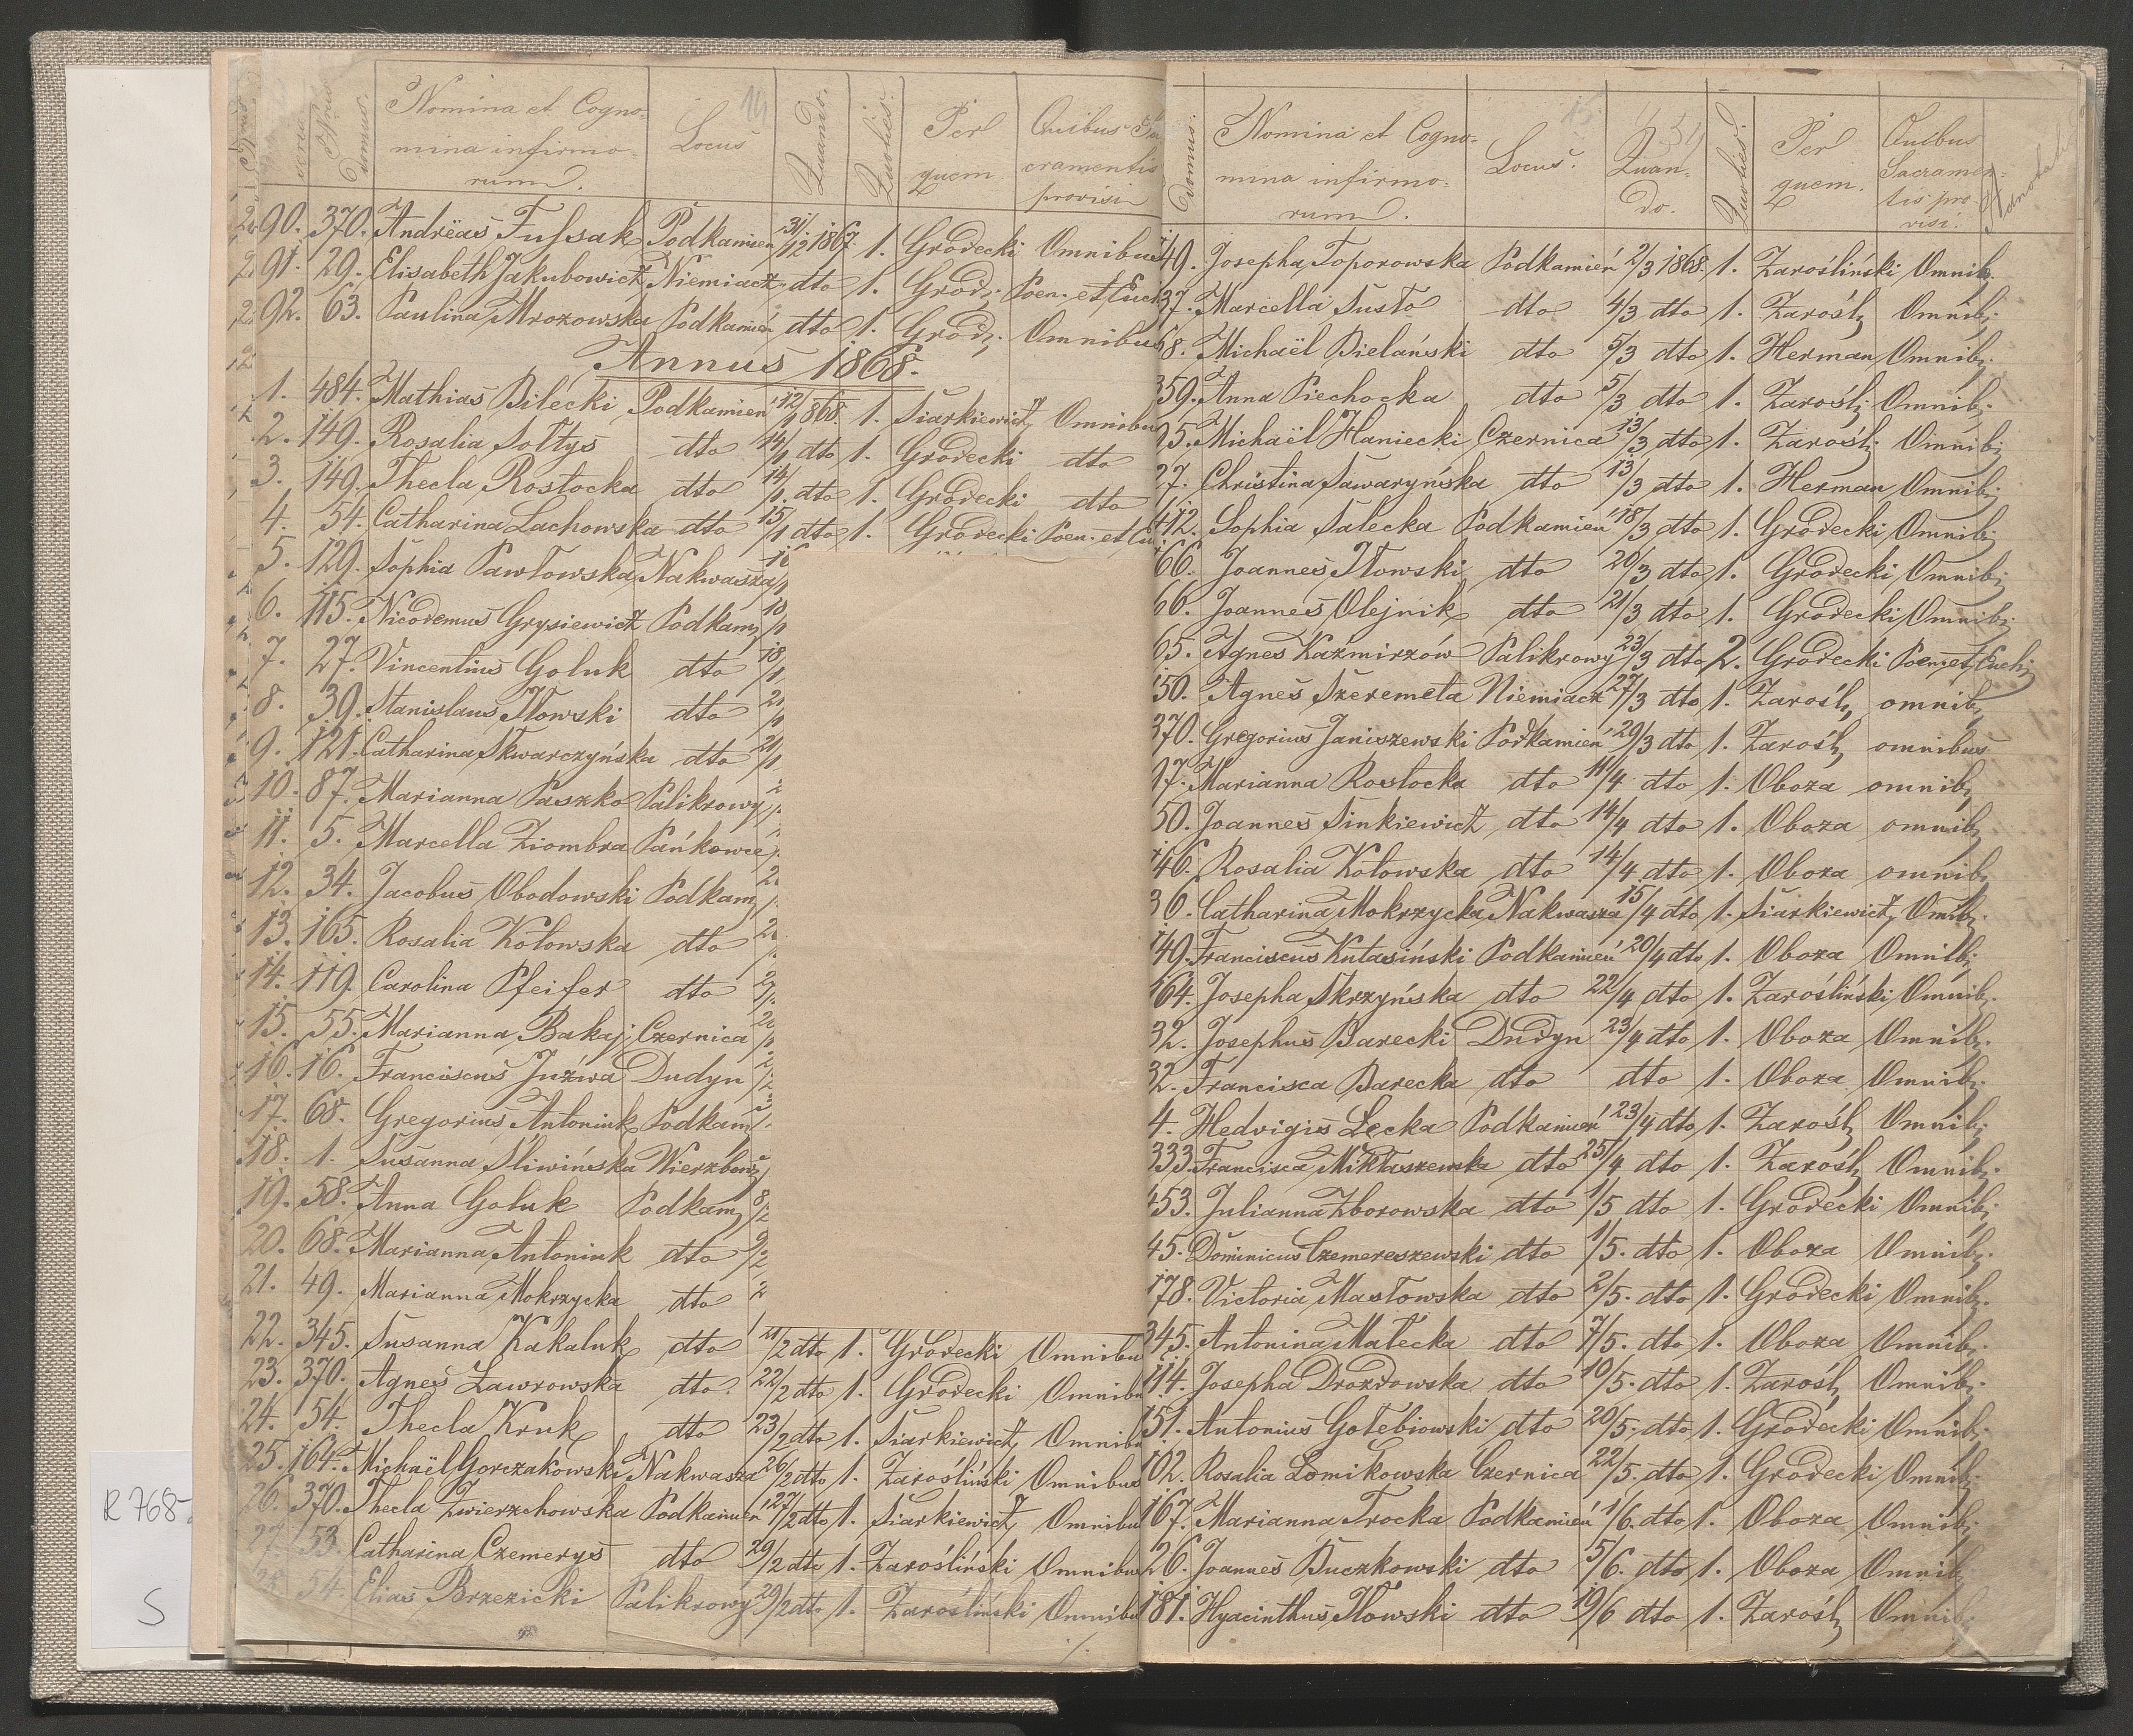 14
Nrus seriei
Nrus Domus.
Nomina et Cogno-
mina infirmo-
rum.
Locus
Quando.
Quoties.
Per
quem.
Quibus Sa
cramentis
provisi
90. 370. Andrëas Fussak Podkamien 31/12 1867. 1. Grodecki Omnibus
91. 29. Elisabeth Jakubowicz Niemiacz dto 1. Grod: Poen. et Euch
92. 63. Paulina Mrozowska Podkamień dto 1. Grod: Omnibus
Annus 1868.
1. 484. Mathias Bilecki Podkamień 12/1 868. 1. Siarkiewicz Omnibu
2. 149. Rosalia Sołtys dto 14/1 dto 1. Grodecki dto
3. 149. Thecla Rostocka dto 14/1. dto 1. Grodecki dto
4. 54. Catharina Lachowska dto 15/1 dto 1. Grodecki Poen. et Eu
5. 129. Sophia Pawłowska Nakwasza
6. 115. Nicodemus Grysiewicz Podkam:
7. 27. Vincentius Goluk dto 18/1
8. 39. Stanislaus Iłowski dto
9. 121. Catharina Skwarczyńska dto
10. 87. Marianna Paszko Palikrowy
11. 5. Marcella Ziombra Pańkowce
12. 34. Jacobus Obodowski Podkam:
13. 165. Rosalia Kotowska dto
14. 119. Carolina Pfeifer dto
15. 55. Marianna Bakaj Czernica
16. 16. Franciscus Juźwa Dudyn
17. 68. Gregorius Antoniuk Podkam
18. 1. Susanna Sliwińska Wierzbow:
19. 58. Anna Goluk Podkam: 8/2
20. 68. Marianna Antoniuk dto 9/2
21. 49. Marianna Mokrzycka dto
22. 345. Susanna Kakaluk dto 21/2 dto 1. Grodecki Omnibu
23. 370. Agnes Ławrowska dto. 22/2 dto 1. Grodecki Omnibu
24. 54. Thecla Kruk dto 23/2 dto 1. Siarkiewicz Omnibu
25. 164. Michaël Gorczakowski Nakwasza 26/2 dto 1. Zarośliński Omnibus
26. 370. Thecla Zwierzchowska Podkamień 27/2 dto 1. Siarkiewicz Omnibu
27. 53. Catharina Czemerys dto 29/2 dto 1. Zarośliński Omnibus
28. 54. Elias Brzezicki Palikrowy 29/2 dto 1. Zarośliński Omnibu
R 768
S
15
Domus.
Nomina et Cogno-
mina infirmo-
rum.
Locus.
Quan-
do.
Quoties.
Per
quem.
Quibus
Sacramen-
tis pro-
visi.
49. Josepha Toporowska Podkamień 2/3 1868. 1. Zarośliński Omnib.
37. Marcella Susło dto 4/3 dto 1. Zarośl: Omnib:
58. Michaël Bielański dto 5/3 dto 1. Herman Omnib:
359. Anna Piechocka dto 5/3 dto 1. Zarośl: Omnib:
95. Michaël Haniecki Czernica 13/3 dto 1. Zarośl: Omnib:
27. Christina Sawaryńska dto 13/3 dto 1. Herman Omnib:
412. Sophia Salecka Podkamień 18/3 dto 1. Grodecki Omnib:
66. Joannes Iłowski dto 20/3 dto 1. Grodecki Omnib:
66. Joannes Olejnik dto 21/3 dto 1. Grodecki Omnib:
65. Agnes Kaźmirzów Palikrowy 23/3 dto 2. Grodecki Poen: et Euch:
150. Agnes Szeremeta Niemiacz 27/3 dto 1. Zarośl: omnib:
370. Gregorius Janiszewski Podkamień 29/3 dto 1. Zarośl: omnibus
97. Marianna Rostocka dto 11/4 dto 1. Oboza omnib:
50. Joannes Sinkiewicz dto 14/4 dto 1. Oboza omnib:
46. Rosalia Kotowska dto 14/4 dto 1. Oboza omnib:
36. Catharina Mokrzycka Nakwasza 15/4 dto 1. Siarkiewicz Omib:
149. Franciscus Kutasiński Podkamień 20/4 dto 1. Oboza Omnib:
164. Josepha Skrzyńska dto 22/4 dto 1. Zarośliński Omnib:
32. Josephus Barecki Dudyn 23/4 dto 1. Oboza Omnib:
32. Francisca Barecka dto dto 1. Oboza Omnib:
4. Hedvigis Lecka Podkamień 23/4 dto 1. Zarośl: Omnib:
333. Francisca Mikłaszewska dto 25/4 dto 1. Zarośl: Omnib:
453. Julianna Zborowska dto 1/5 dto 1. Grodecki Omnib:
45. Dominicus Czemereszewski dto 1/5. dto 1. Oboza Omnib:
178. Victoria Masłowska dto 2/5. dto 1. Grodecki Omnib:
345. Antonina Małecka dto 7/5. dto 1. Oboza Omnib:
114. Josepha Drozdowska dto 10/5. dto 1. Zarośl: Omnib:
151. Antonius Gołebiowski dto 20/5. dto 1. Grodecki Omnib:
102. Rosalia Łomikowska Czernica 22/5. dto 1. Grodecki Omnib:
167. Marianna Trocka Podkamień 1/6. dto 1. Oboza Omnib:
26. Joannes Buczkowski dto 5/6. dto 1. Oboza Omnib:
181. Hyacinthus Iłowski dto 19/6 dto 1. Zarośl: Omnib: